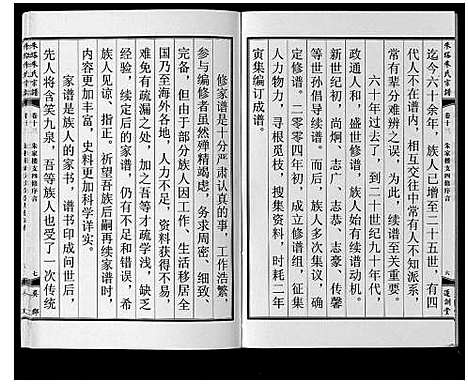 迄今六十余年，族人已增至二十五世，有四
代人不在谱内，相互交往中常有人不知派系，
常有辈分难辨之误，为此，续谱至关重要。
六十年过去了，到二十世纪九十年代，
政通人和，盛世修谱，族人始有续谱动机。
新世纪初，尚炯、志广、志恭、志豪、传馨
等世孙倡导续谱。而后，族人多次集议，确
定修谱。二零零四年初，成立修谱组，集
人力物力，寻根觅枝，搜集资料，时耗二年
寅集编订成谱。
朱塔朱氏宗谱
卷十
朱家楼支四修序言
六
莲训堂
修家谱是十分严肃认真的事，工作浩繁，
参与编修者虽然殚精竭虑，务求周密、细致、
完备，但由于部分族人因工作、生活移居全
国乃至海外各地，人力不足，资料获得不易，
难免有疏漏之处，加之吾等才疏学浅，缺乏
经验，续定后的家谱，仍有不足和错误，希
族人见谅、指正。祈望吾族后嗣再续家谱时，
内容更加丰富，史料更加科学详实。
家谱是族人的家书，谱书印成问世后，
先人将含笑九泉，吾等族人也受了一次传统
朱塔朱氏宗谱
卷十
朱家楼支四修序言
七